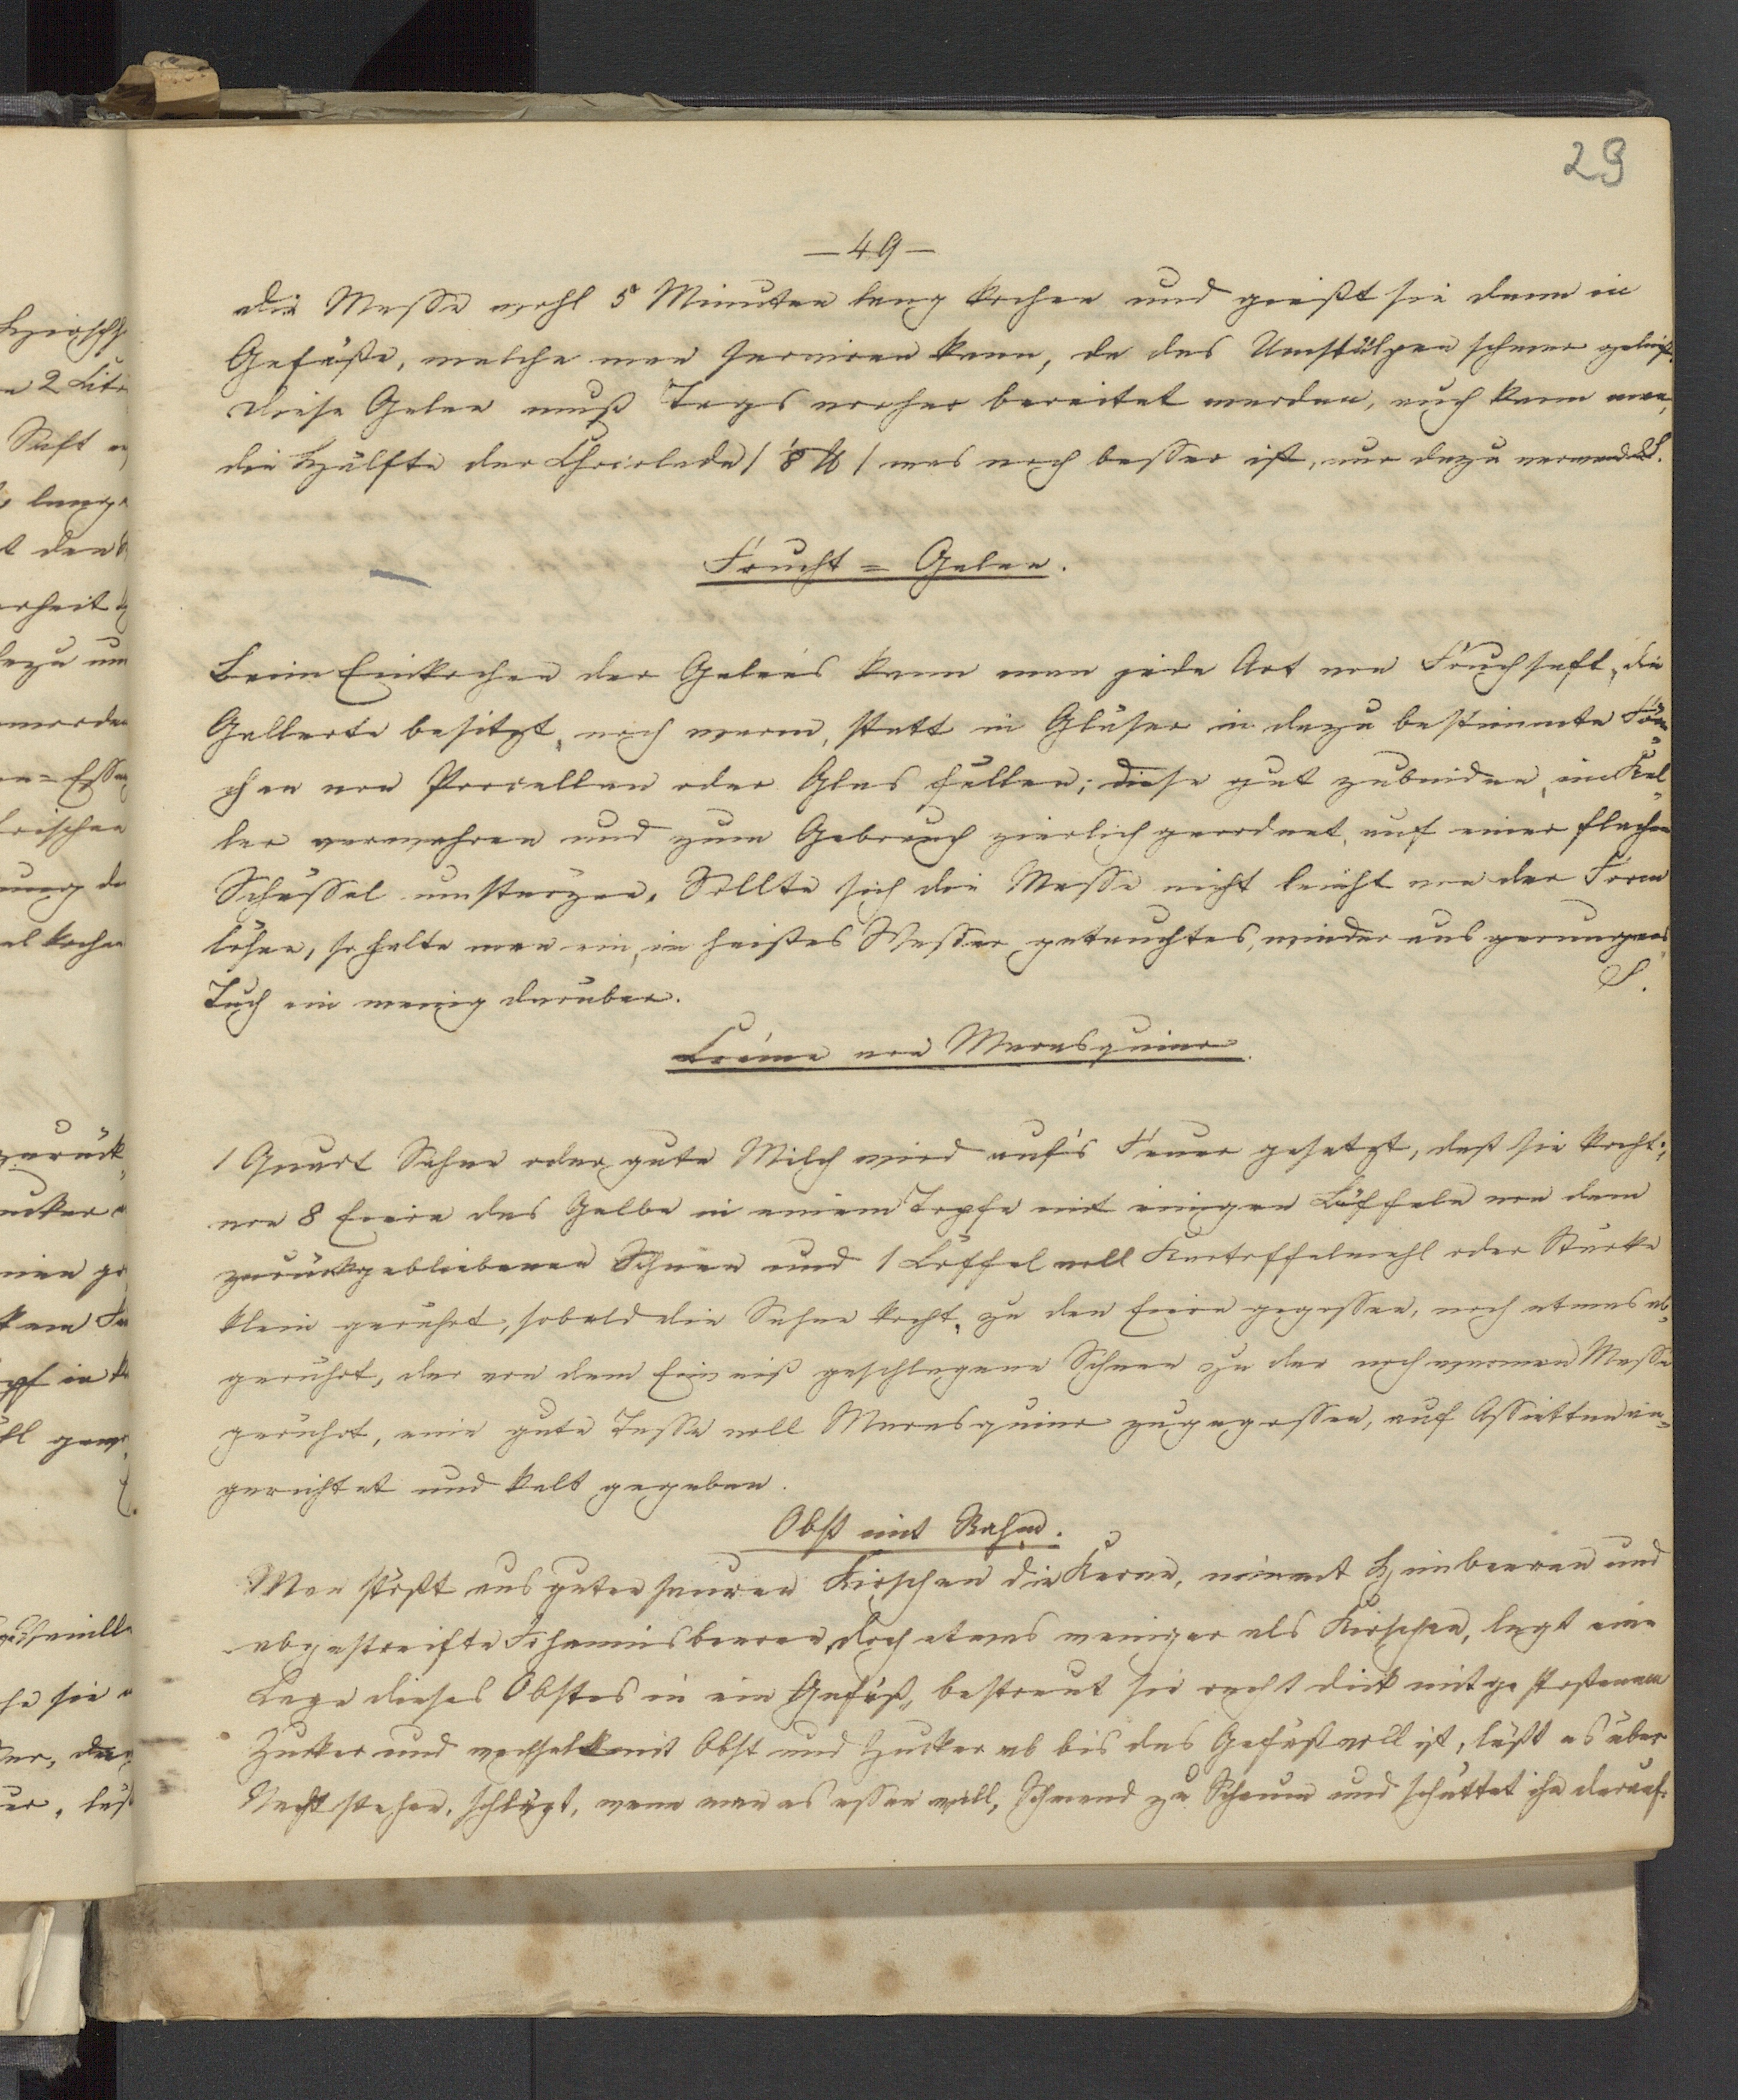 29
— 49 —
die Masse wohl 5 Minuten lang kochen und gießt sie dann in
Gefäße, welche man serviren kann, da das Umstülpen schwer gelingt.
Diese Gelee muß Tags vorher bereitet werden, auch kann man,
die Hälfte der Chocolade / 1/8 ℔ / was noch besser ist, nur dazu verwend.
Frucht = Gelee.
Beim Einkochen der Gelée's kann man jede Art von Fruchsaft, die
Gallerte besitzt, noch warm, statt in Gläser in dazu bestimmte För„
chen von Porcellan oder Glas füllen; diese gut zubinden, im Kel„
ler verwahren und zum Gebrauch zierlich geordnet, auf einer flachen
Schüssel umstürzen. Sollte sich die Masse nicht leicht von der Form
lösen, so halte man ein, in heißes Wasser getauchtes, wieder ausgerungenes
Tuch ein wenig darüber.
S.
Crême von Marasquino.
1 Quart Sahne oder gute Milch wird auf's Feuer gesetzt, daß sie kocht;
von 8 Eiern das Gelbe in einem Topfe mit einigen Löffeln von dem
zurückgebliebenen Schnee und 1 Löffel voll Kartoffelmehl oder Stärke
klein gerührt, sobald die Sahne kocht, zu den Eiern gegossen, noch etwas ab„
gerührt, der von dem Eiweiß geschlagene Schnee zu der noch warmen Masse
gerührt, eine gute Tasse voll Marasquino zugegossen, auf Assietten an„
gerichtet und kalt gegeben.
Obst mit Rahm.
Man stößt aus guten sauren Kirschen die Kerne, nimmt Himbeeren und
abgestreifte Johannisbeeren, doch etwas weniger als Kirschen, legt eine
Lage dieses Obstes in ein Gefäß, bestreut sie recht dick mit gestoßenem
Zucker und wechselt mit Obst und Zucker ab bis das Gefäß voll ist, läßt es über
Nacht stehen, schlägt, wenn man es essen will, Schmand zu Schaum und schüttet ihn darauf.